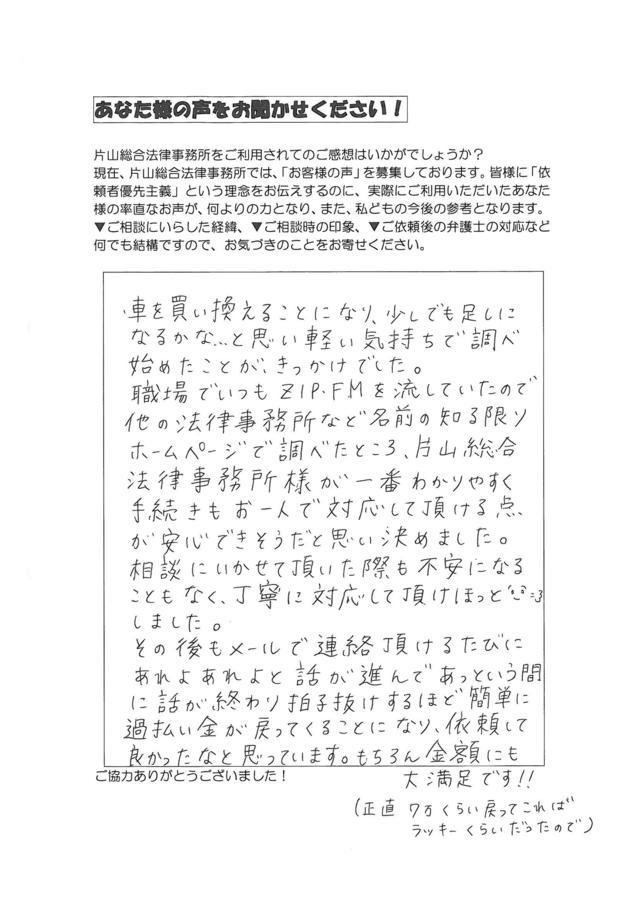 あなた様の声をお聞かせください！
片山総合法律事務所をご利用されてのご感想はいかがでしょうか？
現在、片山総合法律事務所では、「お客様の声」を募集しております。皆様に「依
頼者優先主義」という理念をお伝えするのに、実際にご利用いただいたあなた
様の率直なお声が、何よりの力となり、また、私どもの今後の参考となります。
▼ご相談にいらした経緯、▼ご相談時の印象、▼ご依頼後の弁護士の対応など
何でも結構ですので、お気づきのことをお寄せください。
車を買い換えることになり、少しでも足しに
なるかな...と思い軽い気持ちで調べ
始めたことが、きっかけでした。
職場でいつもZIP.FMを流していたので
他の法律事務所など名前の知る限り
ホームページで調べたところ、片山総合
法律事務所様が一番わかりやすく
手続きもお一人で対応して頂ける点
が安心できそうだと思い決めました。
相談にいかせて頂いた際も不安になる
こともなく、丁寧に対応して頂けほっと
しました。
その後もメールで連絡頂けるたびに
あれよあれよと話が進んであっという間
に話が終わり拍子抜けするほど簡単に
過払い金が戻ってくることになり、依頼して
良かったなと思っています。もちろん金額にも
大満足です!!
(正直 7万くらい戻ってこれば
ラッキーくらいだったので)
ご協力ありがとうございました！